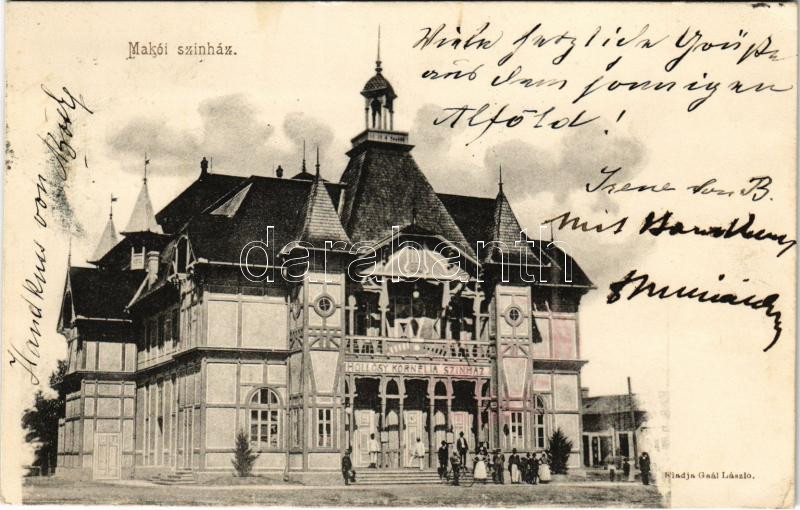 Makói szinház.
Viele herzliche Grüße
aus dem sonnigen
Alföld!
Irene von B.
Mit
Handkuss von
darabanth
HOLLÓSY KORNÉLIA SZINHÁZ
Kiadja Gaál László.